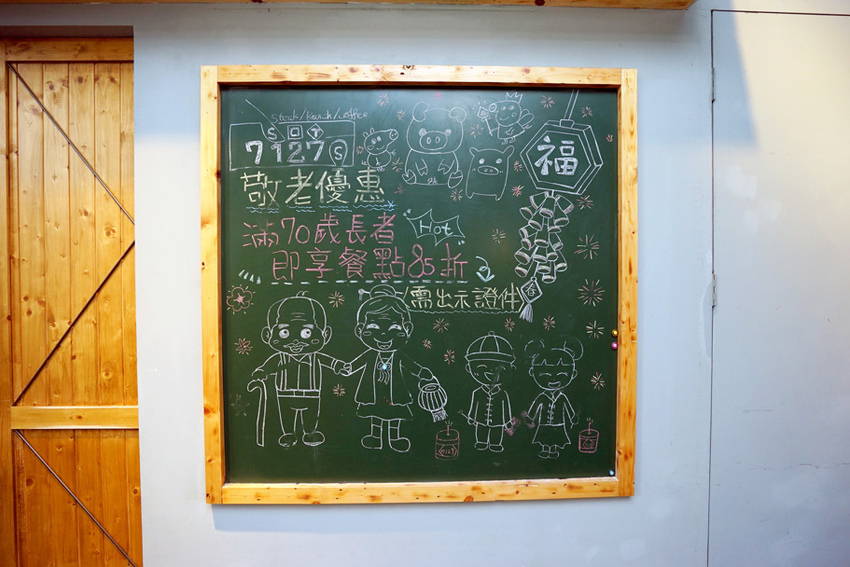 Steak/Brunch/Coffee
S 口 T
7127 S
敬老優惠
滿70歲長者
Hot
即享餐點85折
(需出示證件)
福